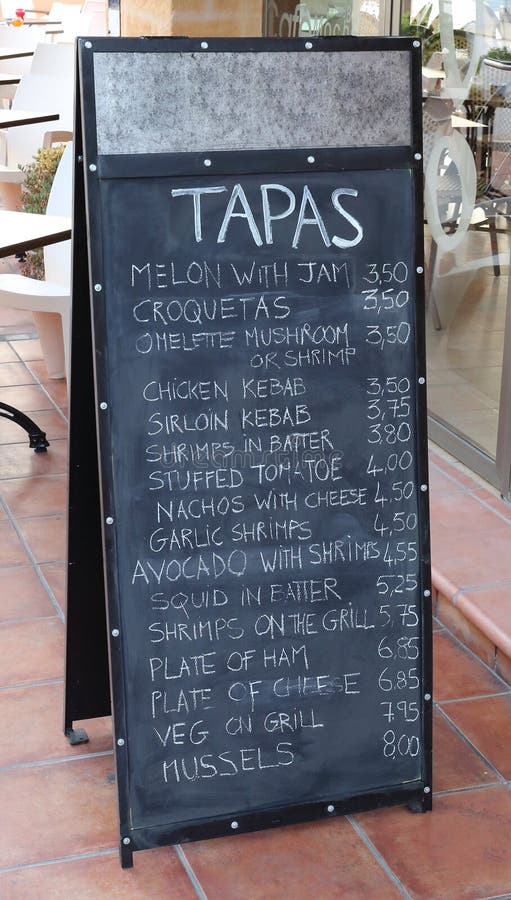 TAPAS
MELON WITH JAM 3,50
CROQUETAS 3,50
OMELETTE MUSHROOM 3,50
OR SHRIMP
CHICKEN KEBAB 3,50
SIRLOIN KEBAB 3,75
SHRIMPS IN BATTER 3,80
STUFFED TOMATOE 4,00
NACHOS WITH CHEESE 4,50
GARLIC SHRIMPS 4,50
AVOCADO WITH SHRIMPS 4,55
SQUID IN BATTER 5,25
SHRIMPS ON THE GRILL 5,75
PLATE OF HAM 6,85
PLATE OF CHEESE 6,85
VEG ON GRILL 7,95
MUSSELS 8,00